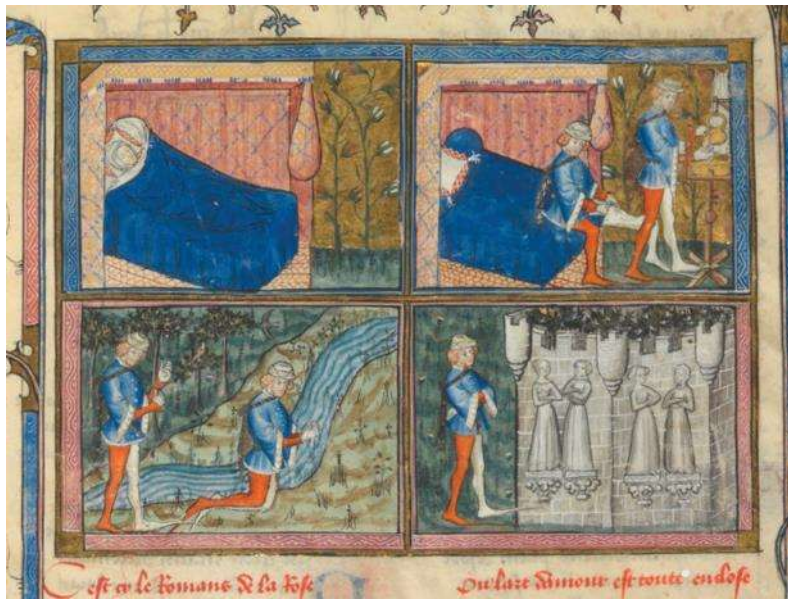 Cest cy le Romans de la Rose
Ou lart damour est toute enclose